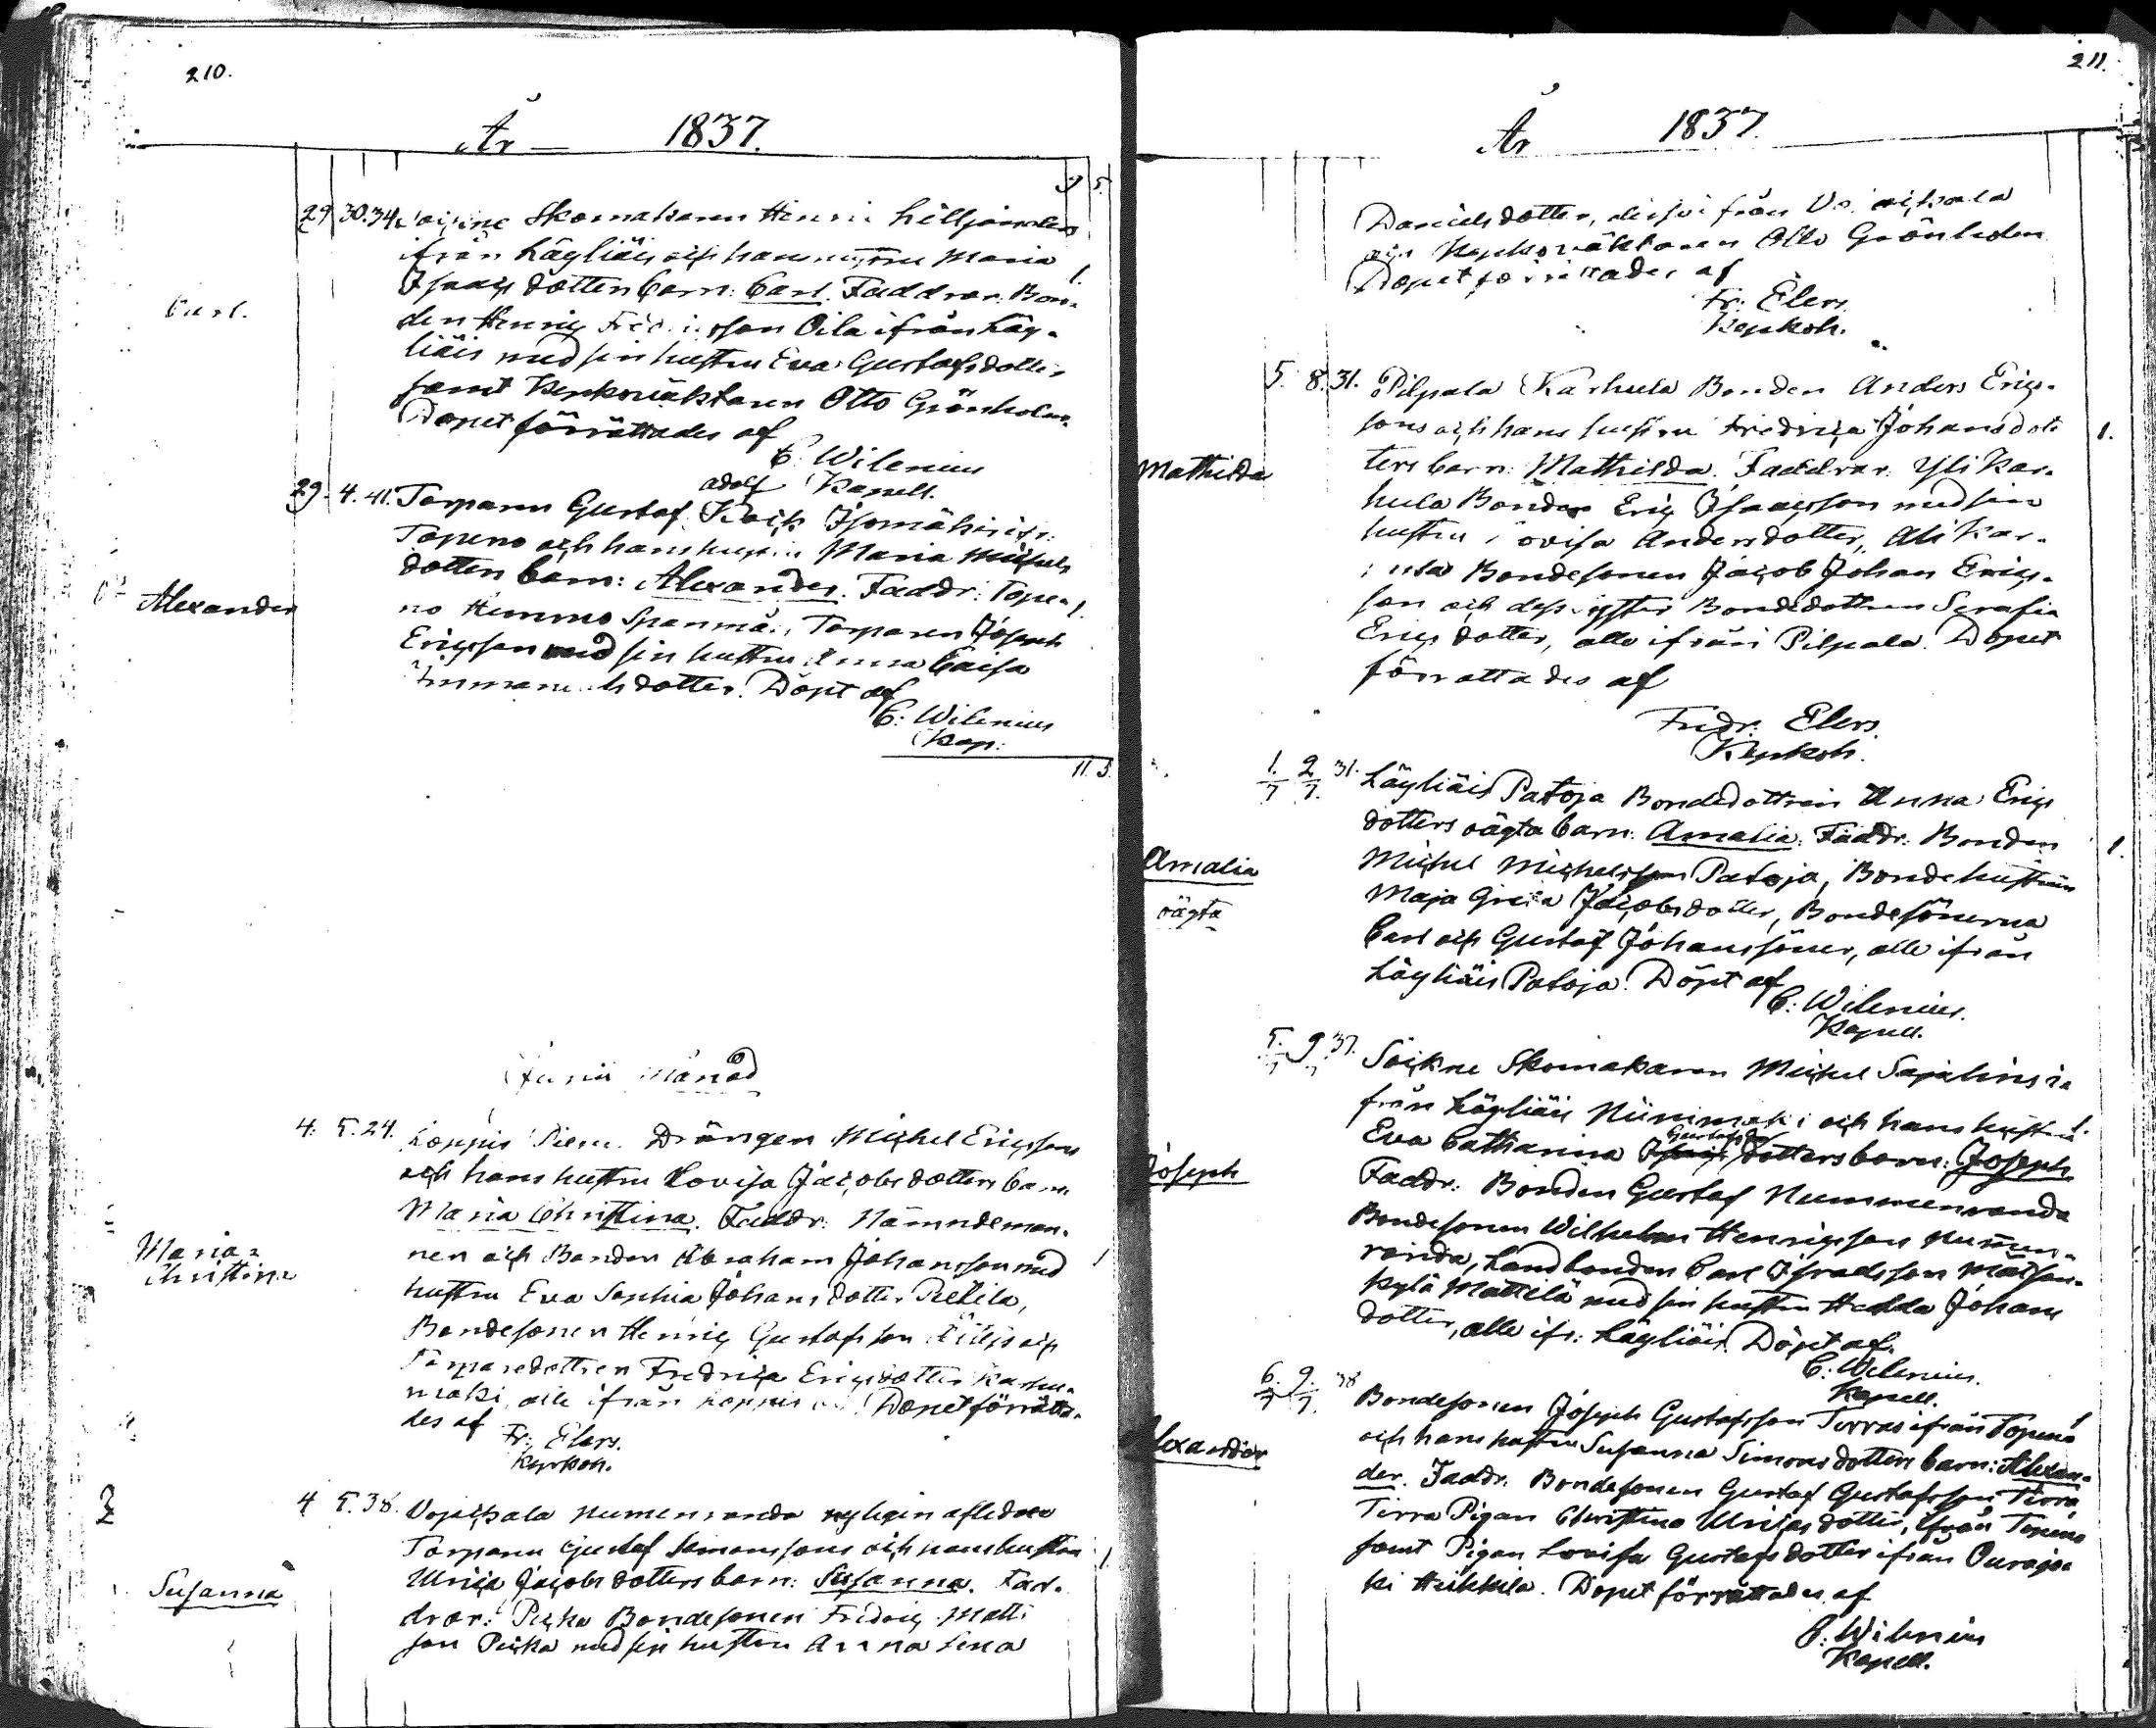 210.
År — 1837.
9 5.
29 30. 34. Soickne Skomakaren Henric Lilljanders
ifrån Läyliäis och hans hustru Maria
Isaacs dotters barn: Carl. Faddrar: Bon-
1.
Carl.
den Henric Fredricsson Oila ifrån Läy-
liäis med sin hustru Eva Gustafsdotter
samt Kyrkoväktaren Otto Grönholm.
Dopet förrättades af
C. Wilenius
Kapell.
29. 4. 41. Torparen Gustaf Adolf Isomäki ifr:
Topeno och hans hustru Maria Michels
dotters barn: Alexander. Faddr: Tope-
1.
Alexander
no Hemmo Torparen Joseph
Ericsson med sin hustru Anna Caisa
Immanuels dotter. Döpt af
C: Wilenius
Kap:
11. 5.
Junii Månad
4. 5. 24. Loppis Drängen Michel Ericssons
och hans hustru Lovisa Jacobs dotters barn
Maria Christina. Faddr: Nämndeman-
Maria
Christina
nen och Bonden Abraham Johansson med
1
hustru Eva Sophia Johans dotter Pietilä,
Bondesonen Henric Gustafsson och
Torparedottren Fredrica Ericsdotter Karhu-
mäki, alle ifrån Loppis Dopet förrätta-
des af
Fr: Elers.
Kyrkoh.
4 5. 38. Vojakkala Numenranda nyligen afledne
Torparen Gustaf Simonssons och hans hustru
1.
Ulrica Jacobs dotters barn: Susanna. Fad-
Susanna
drar: Bondesonen Fredric Matts
son med sin hustru Anna Lena
211.
År 1837.
Danielsdotter, alla ifrån
och Kyrkoväktaren Otto Grönholm
Dopet förrättades af
Fr: Elers.
Kyrkoh.
5. 8. 31. Pilpala Karhula Bonden Anders Erics-
sons och hans hustru Fredrica Johansdot
1.
ters barn: Mathilda. Faddrar: Yli Kar-
Mathilda
hula Bonden Eric Isaacsson med sin
hustru Lovisa Andersdotter, Ali Kar-
hula Bondesonen Jacob Johan Erics-
son och dess syster Bondedottren Serafia
Erics dotter, alle ifrån Pilpala. Dopet
förrättades af
Fredr: Elers.
Kyrkoh.
1. 2 31. Läyliäis Patoja Bondedottren Anna Erics
7 7.
dotters oägta barn: Amalia. Faddr: Bonden
1.
Michel Michelsson Patoja, Bondehustrun
Amalia
oägta
Maja Greta Jacobsdotter, Bondesönerna
Carl och Gustaf Johanssöner, alle ifrån
Läyliäis Patoja. Döpt af
C: Wilenius.
Kapell.
5. 9 37. Soickne Skomakaren Michel Sajalins i
7 7
från Läyliäis Niinimäki och hans hustru
1.
Eva Catharina Gustafs dotters barn: Joseph
Joseph
Faddr: Bonden Gustaf Nummenranda
Bondesonen Wilhelm Henricsson Numen-
randa, Landbonden Carl Israelsson
kylä Mattilä med sin hustru Hedda Johans
dotter, alle ifr: Läyliäis. Döpt af
C: Wilenius.
Kapell.
6. 9. 38 Bondesonen Joseph Gustafsson Tirra ifrån Topeno
7 7.
1
och hans hustru Susanna Simons dotters barn: Alexan-
Alexander
der. Faddr. Bondesonen Gustaf Gustafsson Tirra
Tirra Pigan Christina Ulricas dotter, ifrån Topeno
samt Pigan Lovisa Gustafs dotter ifrån Ourajo-
ki Heikkilä. Dopet förrättades af
C. Wilenius
Kapell.